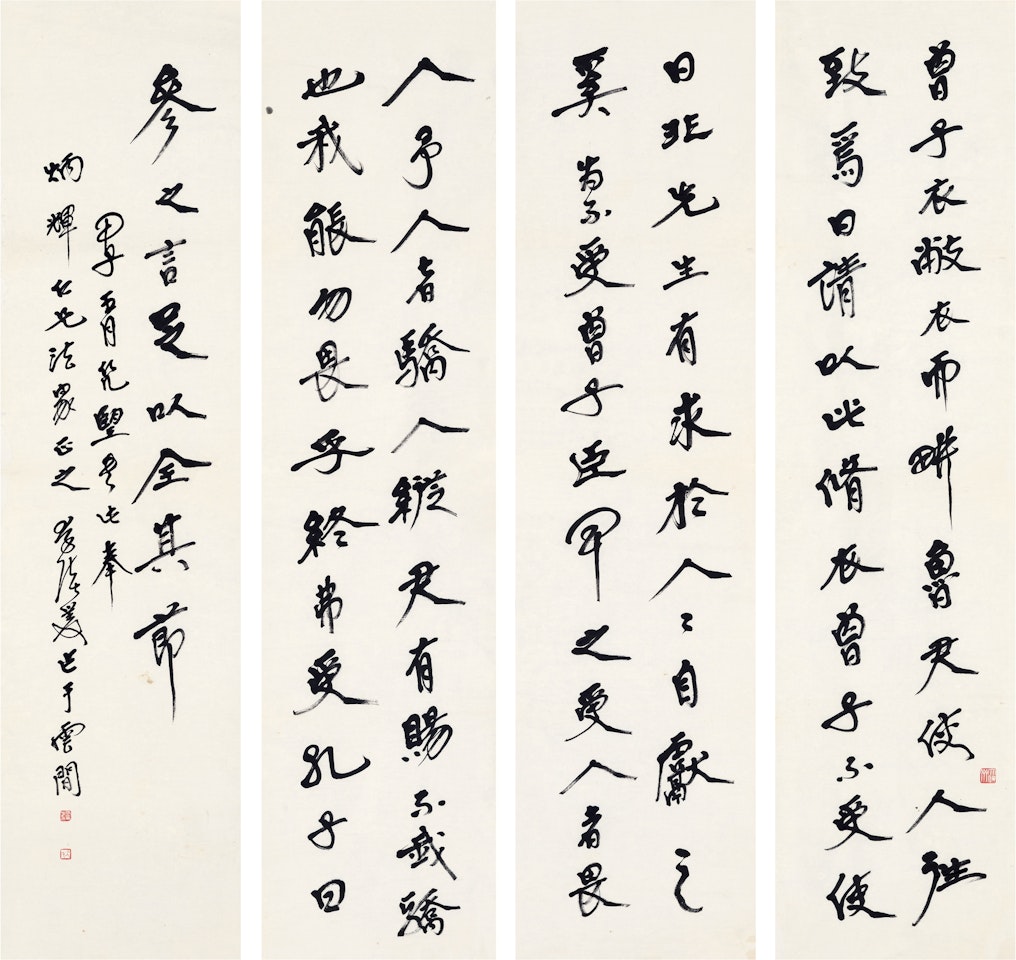 曾子衣敝衣而畊魯君使人往
致焉曰請以此脩衣曾子不受使
曰非先生有求於人〻自獻之
奚為不受曾子臣聞之受人者畏
人予人者驕人縱君有賜不我驕
也我能勿畏乎終弗受孔子曰
參之言足以全其節
書此奉
炳輝仁兄法家正之 于雲間